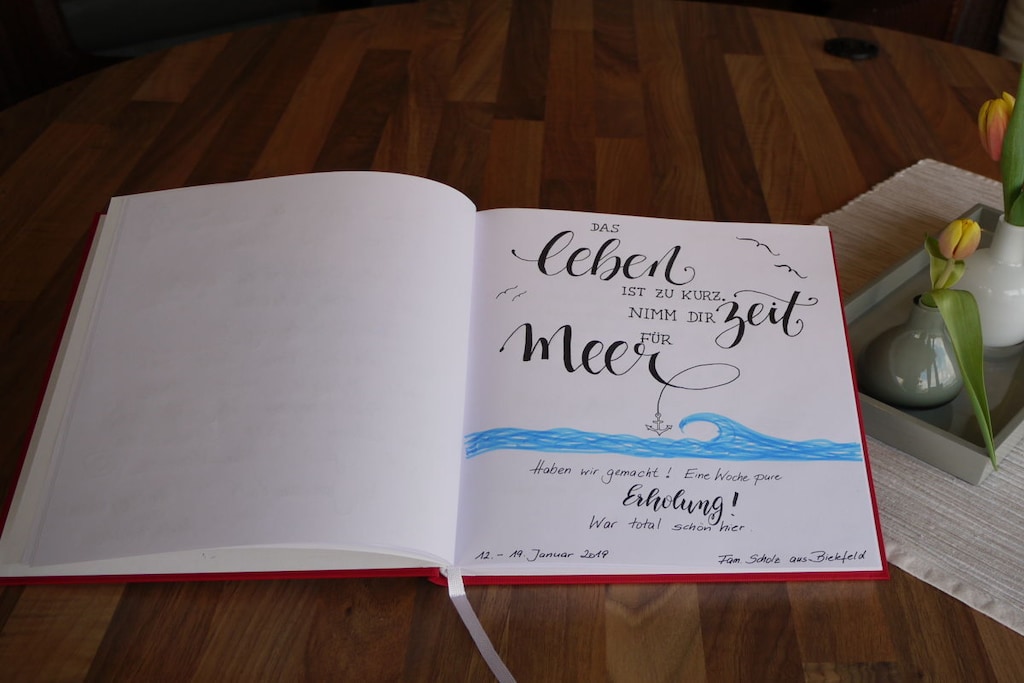 DAS
leben
IST ZU KURZ.
NIMM DIR zeit
FÜR
Meer
Haben wir gemacht! Eine Woche pure
Erholung!
War total schön hier.
12. - 19. Januar 2019
Fam. Scholz aus Bielefeld